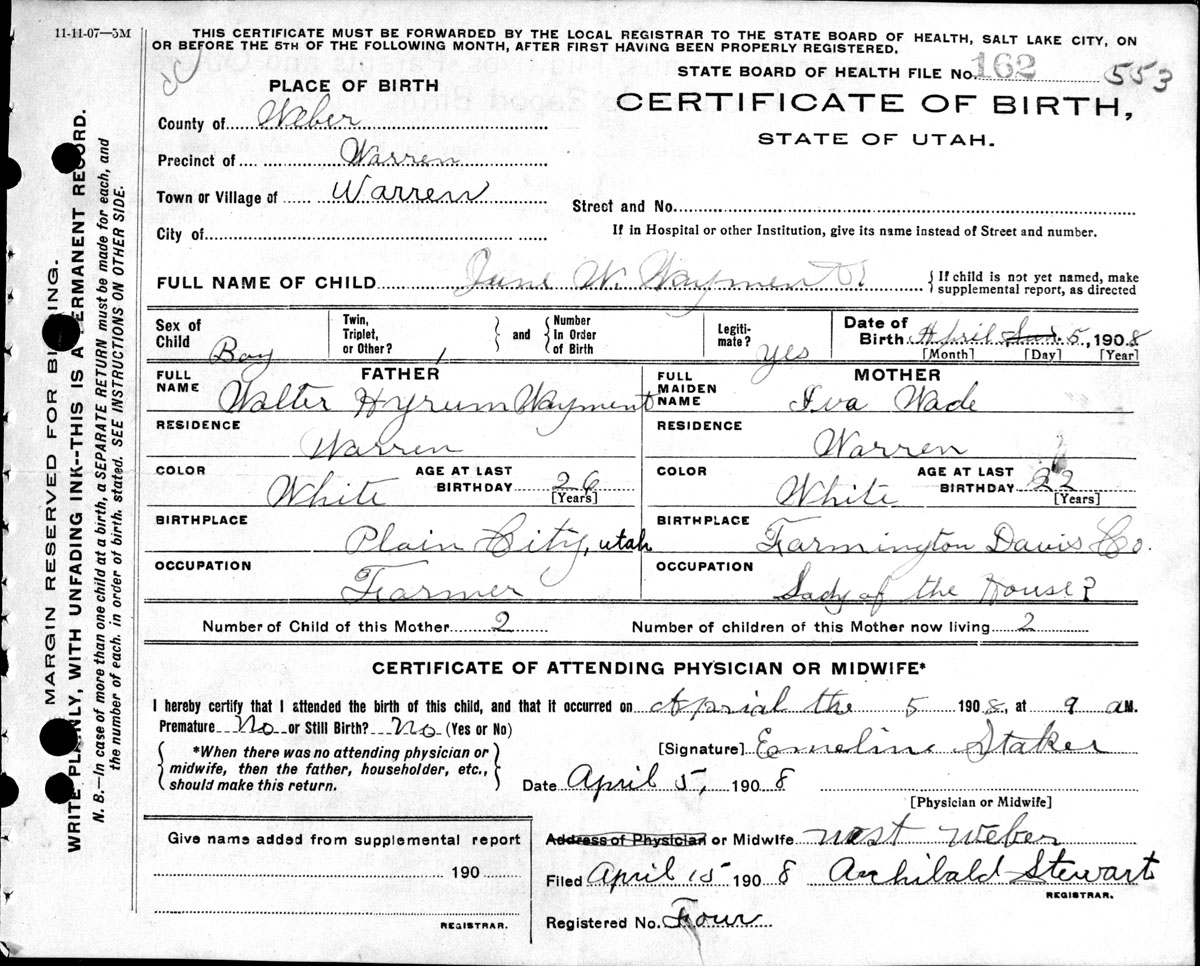 11-11-07—5M
THIS CERTIFICATE MUST BE FORWARDED BY THE LOCAL REGISTRAR TO THE STATE BOARD OF HEALTH, SALT LAKE CITY, ON
OR BEFORE THE 5TH OF THE FOLLOWING MONTH, AFTER FIRST HAVING BEEN PROPERLY REGISTERED.
STATE BOARD OF HEALTH FILE No. 162 553
PLACE OF BIRTH
CERTIFICATE OF BIRTH,
STATE OF UTAH.
County of Weber
Precinct of Warren
Town or Village of Warren
Street and No.
City of
If in Hospital or other Institution, give its name instead of Street and number.
FULL NAME OF CHILD June W. Wayment
If child is not yet named, make
supplemental report, as directed
Sex of Child Boy
Twin, Triplet, or Other?
and
Number In Order of Birth
Legitimate? Yes
Date of Birth April 5, 1908
[Month] [Day] [Year]
FATHER
FULL NAME Walter Hyrum Wayment
MOTHER
FULL MAIDEN NAME Iva Wade
RESIDENCE Warren
RESIDENCE Warren
COLOR White
AGE AT LAST BIRTHDAY 26 [Years]
COLOR White
AGE AT LAST BIRTHDAY 22 [Years]
BIRTHPLACE Plain City, utah
BIRTHPLACE Farmington Davis Co.
OCCUPATION Farmer
OCCUPATION Lady of the House?
Number of Child of this Mother 2
Number of children of this Mother now living 2
CERTIFICATE OF ATTENDING PHYSICIAN OR MIDWIFE*
I hereby certify that I attended the birth of this child, and that it occurred on Aprial the 5 1908, at 9 a M.
Premature No or Still Birth? No (Yes or No)
*When there was no attending physician or
midwife, then the father, householder, etc.,
should make this return.
[Signature] Emeline Staker
Date April 5, 1908
[Physician or Midwife]
Address of Physician or Midwife west weber
Filed April 15 1908 Archibald Stewart
REGISTRAR.
Registered No. Four
Give name added from supplemental report
190
REGISTRAR.
MARGIN RESERVED FOR BINDING.
WRITE PLAINLY, WITH UNFADING INK--THIS IS A PERMANENT RECORD.
N. B.—In case of more than one child at a birth, a SEPARATE RETURN must be made for each, and
the number of each, in order of birth, stated. SEE INSTRUCTIONS ON OTHER SIDE.